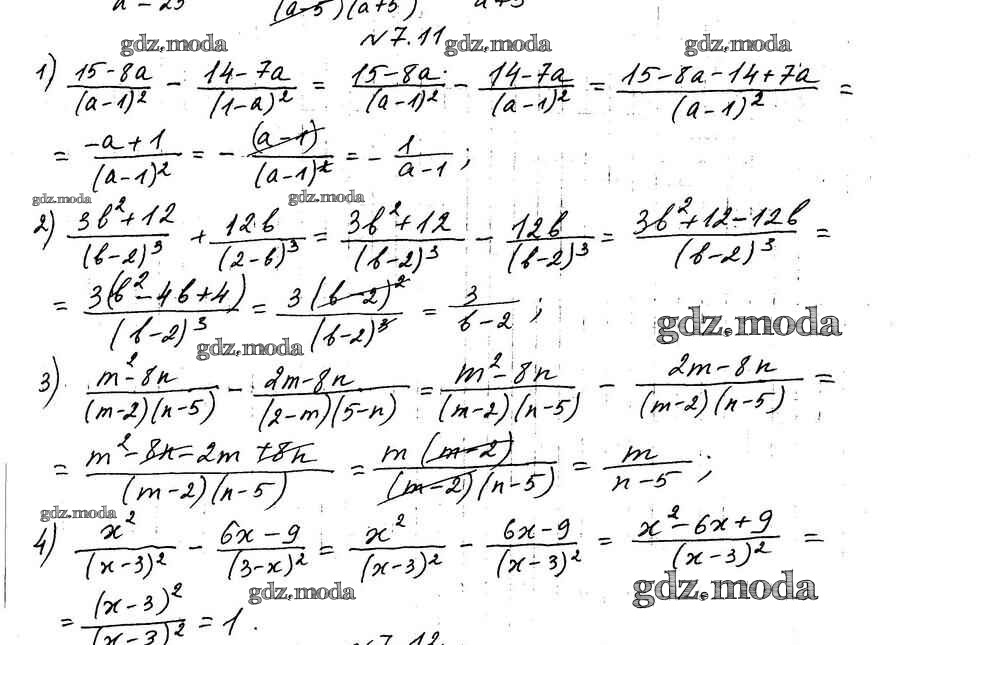 a-25 (a-5)(a+5) a+5
№7.11
gdz.moda gdz.moda gdz.moda
1) (15-8a)/(a-1)² - (14-7a)/(1-a)² = (15-8a)/(a-1)² - (14-7a)/(a-1)² = (15-8a-14+7a)/(a-1)² =
= (-a+1)/(a-1)² = - (a-1)/(a-1)² = - 1/(a-1);
gdz.moda gdz.moda
2) (3b²+12)/(b-2)³ + 12b/(2-b)³ = (3b²+12)/(b-2)³ - 12b/(b-2)³ = (3b²+12-12b)/(b-2)³ =
= 3(b²-4b+4)/(b-2)³ = 3(b-2)²/(b-2)³ = 3/(b-2);
gdz.moda
gdz.moda
3) (m²-8n)/(m-2)(n-5) - (2m-8n)/(2-m)(5-n) = (m²-8n)/(m-2)(n-5) - (2m-8n)/(m-2)(n-5) =
= (m²-8n-2m+8n)/(m-2)(n-5) = m(m-2)/(m-2)(n-5) = m/(n-5);
gdz.moda
4) x²/(x-3)² - (6x-9)/(3-x)² = x²/(x-3)² - (6x-9)/(x-3)² = (x²-6x+9)/(x-3)² =
gdz.moda gdz.moda
= (x-3)²/(x-3)² = 1.
№7.12.